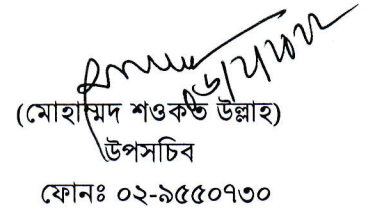 (মোহাম্মদ শওকত উল্লাহ)
উপসচিব
ফোনঃ ০২-৯৫৫০৭৩০